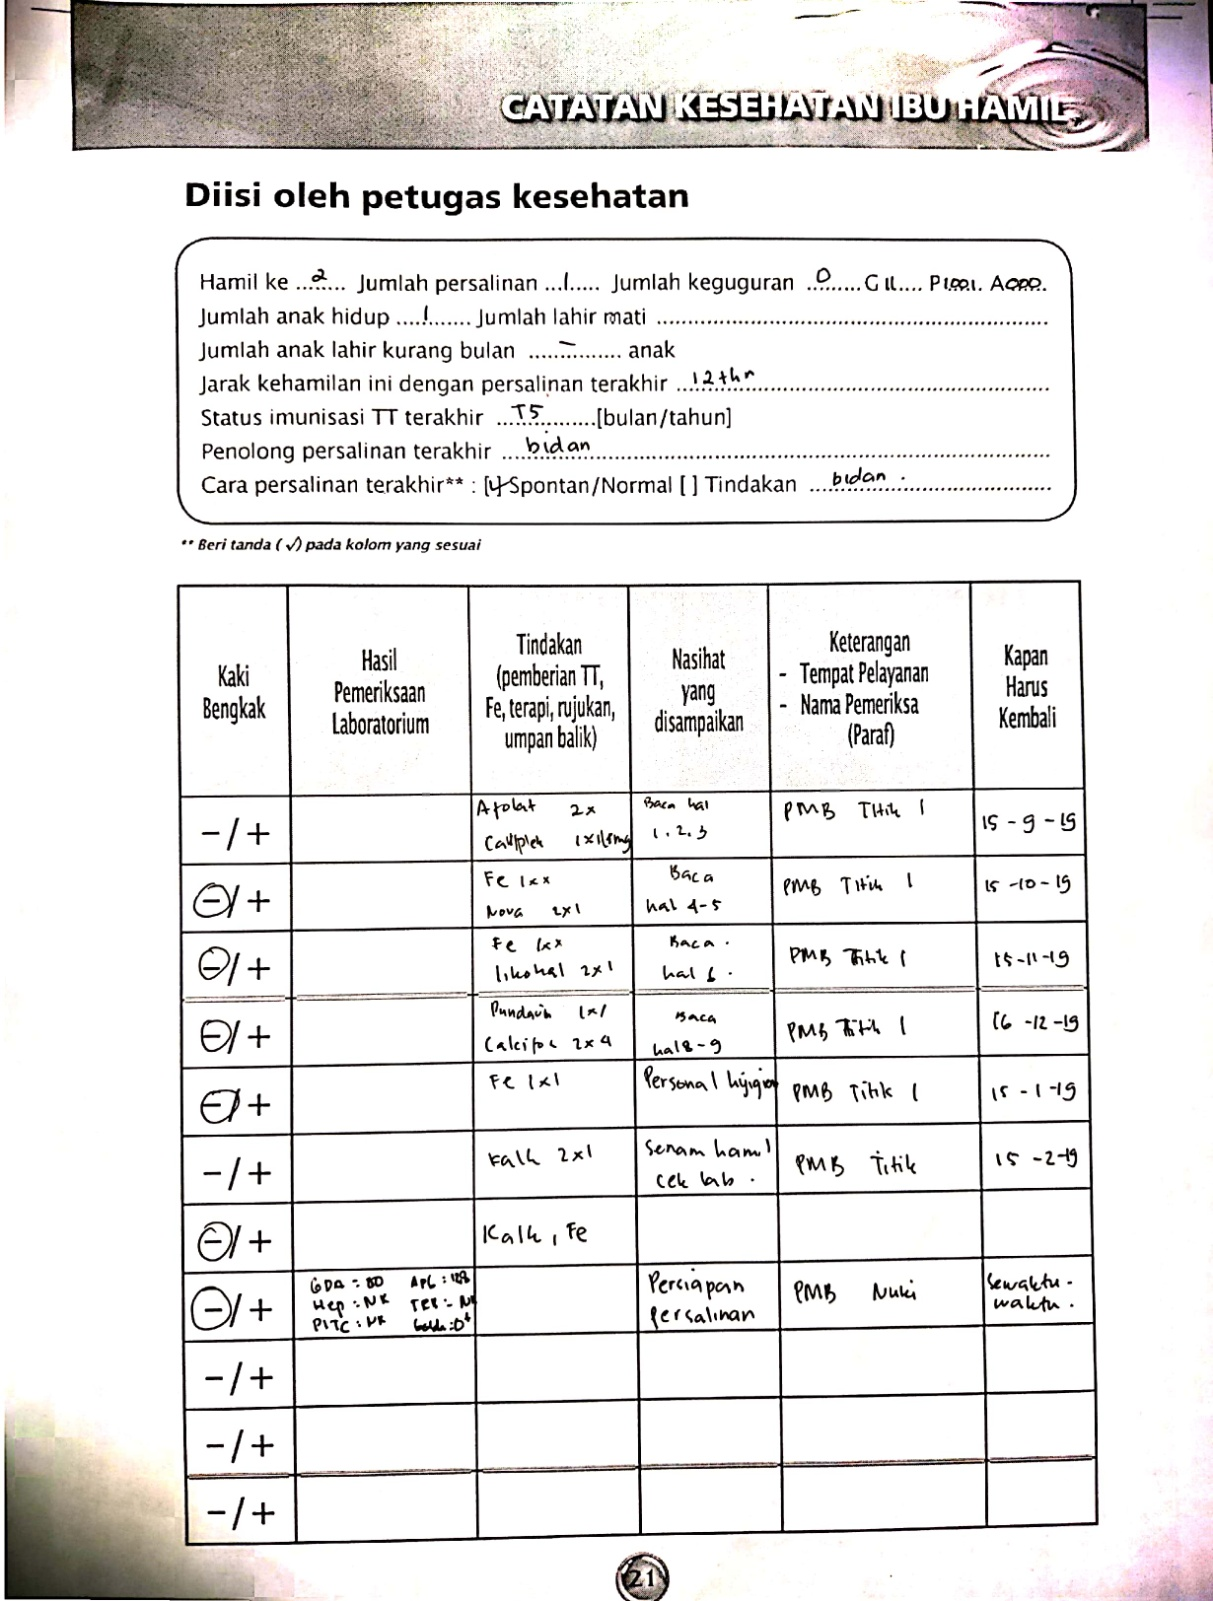 CATATAN KESEHATAN IBU HAMIL
Diisi oleh petugas kesehatan
Hamil ke ...2... Jumlah persalinan ...1..... Jumlah keguguran ..0......G II.... P1001. A000.
Jumlah anak hidup ....1....... Jumlah lahir mati ...........
Jumlah anak lahir kurang bulan .....–...... anak
Jarak kehamilan ini dengan persalinan terakhir ..12 thn......
Status imunisasi TT terakhir ..T5........[bulan/tahun]
Penolong persalinan terakhir ..bidan......
Cara persalinan terakhir** : [√] Spontan/Normal [ ] Tindakan ..bidan.....
** Beri tanda ( √) pada kolom yang sesuai
Kaki
Bengkak
Hasil
Pemeriksaan
Laboratorium
Tindakan
(pemberian TT,
Fe, terapi, rujukan,
umpan balik)
Nasihat
yang
disampaikan
Keterangan
- Tempat Pelayanan
- Nama Pemeriksa
(Paraf)
Kapan
Harus
Kembali
- / +
2x
Baca hal
1, 2, 3
PMB Titik 1
15 - 9 - 19
- / +
Fe 1xx
Nova 2x1
Baca
hal 4-5
PMB Titik 1
15 -10 - 19
- / +
Fe 1xx
2x1
Baca.
hal 6.
PMB Titik 1
15-11-19
- / +
1x1
2x4
Baca
hal 8-9
PMB Titik 1
16 -12 -19
- / +
Fe 1x1
Personal
PMB Titik 1
15 - 1 -19
- / +
Kalk 2x1
Senam hamil
cek lab .
PMB Titik
15 -2-19
- / +
Kalk, Fe
- / +
GDA : 80
Hep : NR
PITC : NR
Persiapan
Persalinan
PMB Nuki
Sewaktu-
waktu.
- / +
- / +
- / +
21